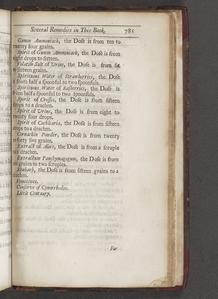 Several Remedies in This Book. 781
Gumm Ammoniack, the Dose is from ten to
twenty four grains.
Spirit of Gumm Ammoniack, the Dose is from
eight drops to fifteen.
Volatile Salt of Urine, the Dose is from six
to fifteen grains.
Spirituous Water of Strawberries, the Dose
from half a spoonful to two spoonfuls.
Spirituous Water of Rasberries, the Dose is
from half a spoonful to two spoonfuls.
Spirit of Cresses, the Dose is from fifteen
drops to a drachm.
Spirit of Urine, the Dose is from eight to
twenty four drops.
Spirit of Cochlearia, the Dose is from fifteen
drops to a drachm.
Cornachin Powder, the Dose is from twenty
to fifty five grains.
Extract of Aloes, the Dose is from a scruple
to a drachm.
Extractum Panchymagogum, the Dose is from
grains to two scruples.
Rhubarb, the Dose is from fifteen grains to a
drachm.
Conserve of Cynorrhodon.
Little Centaury.
For